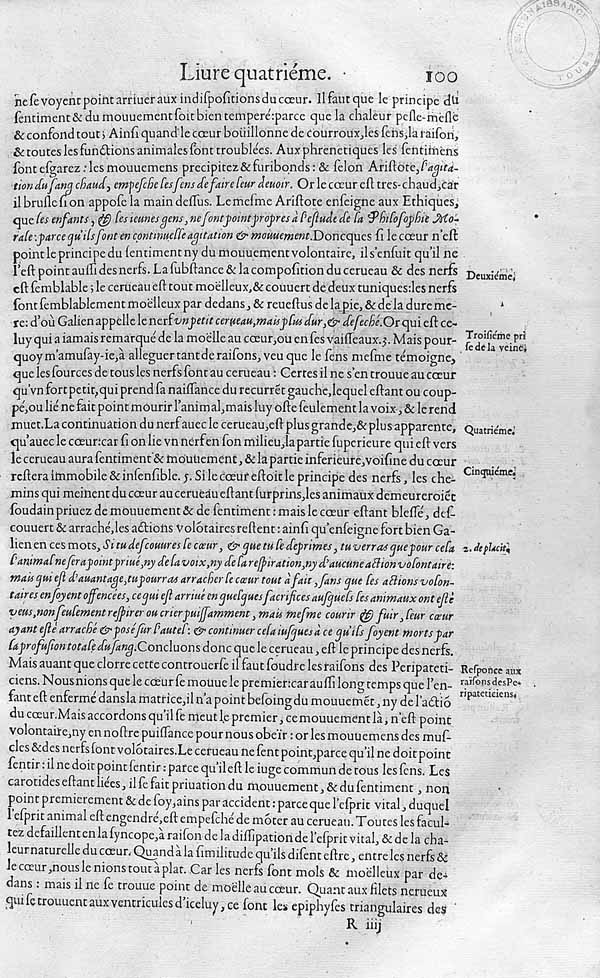 Liure quatriéme. 100
ne se voyent point arriuer aux indispositions du cœur. Il faut que le principe du
sentiment & du mouuement soit bien temperé: parce que la chaleur pesle-mesle
& confond tout; Ainsi quand le cœur boüillonne de courroux, les sens, la raison,
& toutes les functions animales sont troublées. Aux phrenetiques les sentimens
sont esgarez: les mouuemens precipitez & furibonds: & selon Aristote, l'agita-
tion du sang chaud, empesche les sens de faire leur deuoir. Or le cœur est tres-chaud, car
il brusle si on appose la main dessus. Le mesme Aristote enseigne aux Ethiques,
que les enfants, & les ieunes gens, ne sont point propres à l'estude de la Philosophie Mo-
rale: parce qu'ils sont en continuelle agitation & mouuement. Doncques si le cœur n'est
point le principe du sentiment ny du mouuement volontaire, il s'ensuit qu'il ne
l'est point aussi des nerfs. La substance & la composition du cerueau & des nerfs
est semblable; le cerueau est tout moëlleux, & couuert de deux tuniques: les nerfs
Deuxiéme.
sont semblablement moëlleux par dedans, & reuestus de la pie, & de la dure me-
re: d'où Galien appelle le nerf vn petit cerueau, mais plus dur, & deseché. Or qui est ce-
luy qui a iamais remarqué de la moëlle au cœur, ou en ses vaisseaux. 3. Mais pour-
Troisiéme pri
se de la veine.
quoy m'amusay-ie, à alleguer tant de raisons, veu que le sens mesme témoigne,
que les sources de tous les nerfs sont au cerueau: Certes il ne s'en trouue au cœur
qu'vn fort petit, qui prend sa naissance du recurrẽt gauche, lequel estant ou coup-
pé, ou lié ne fait point mourir l'animal, mais luy oste seulement la voix, & le rend
muet. La continuation du nerf auec le cerueau, est plus grande, & plus apparente,
Quatriéme.
qu'auec le cœur: car si on lie vn nerf en son milieu, la partie superieure qui est vers
le cerueau aura sentiment & mouuement, & la partie inferieure, voisine du cœur
restera immobile & insensible. 5. Si le cœur estoit le principe des nerfs, les che-
Cinquiéme.
mins qui meinent du cœur au cerueau estant surprins, les animaux demeureroiẽt
soudain priuez de mouuement & de sentiment: mais le cœur estant blessé, des-
couuert & arraché, les actions volõtaires restent: ainsi qu'enseigne fort bien Ga-
lien en ces mots, Si tu descouures le cœur, & que tu le deprimes, tu verras que pour cela
2. de placit.
l'animal ne sera point priué, ny de la voix, ny de la respiration, ny d'aucune action volontaire:
mais qui est d'auantage, tu pourras arracher le cœur tout à fait, sans que les actions volon-
taires en soyent offencées, ce qui est arriué en quelques sacrifices ausquels les animaux ont esté
veus, non seulement respirer ou crier puissamment, mais mesme courir & fuir, leur cœur
ayant esté arraché & posé sur l'autel: & continuer cela iusques à ce qu'ils soyent morts par
la profusion totale du sang. Concluons donc que le cerueau, est le principe des nerfs.
Mais auant que clorre cette controuerse il faut soudre les raisons des Peripateti-
Response aux
raisons des Pe-
ripateticiens.
ciens. Nous nions que le cœur se mouue le premier: car aussi long temps que l'en-
fant est enfermé dans la matrice, il n'a point besoing du mouuemẽt, ny de l'actiõ
du cœur. Mais accordons qu'il se meut le premier, ce mouuement là, n'est point
volontaire, ny en nostre puissance pour nous obeïr: or les mouuemens des mus-
cles & des nerfs sont volõtaires. Le cerueau ne sent point, parce qu'il ne doit point
sentir: il ne doit point sentir: parce qu'il est le iuge commun de tous les sens. Les
carotides estant liées, il se fait priuation du mouuement, & du sentiment, non
point premierement & de soy, ains par accident: parce que l'esprit vital, duquel
l'esprit animal est engendré, est empesché de mõter au cerueau. Toutes les facul-
tez defaillent en la syncope, à raison de la dissipation de l'esprit vital, & de la cha-
leur naturelle du cœur. Quand à la similitude qu'ils disent estre, entre les nerfs &
le cœur, nous le nions tout à plat. Car les nerfs sont mols & moëlleux par de-
dans: mais il ne se trouue point de moëlle au cœur. Quant aux filets nerueux
qui se trouuent aux ventricules d'iceluy, ce sont les epiphyses triangulaires des
R iiij